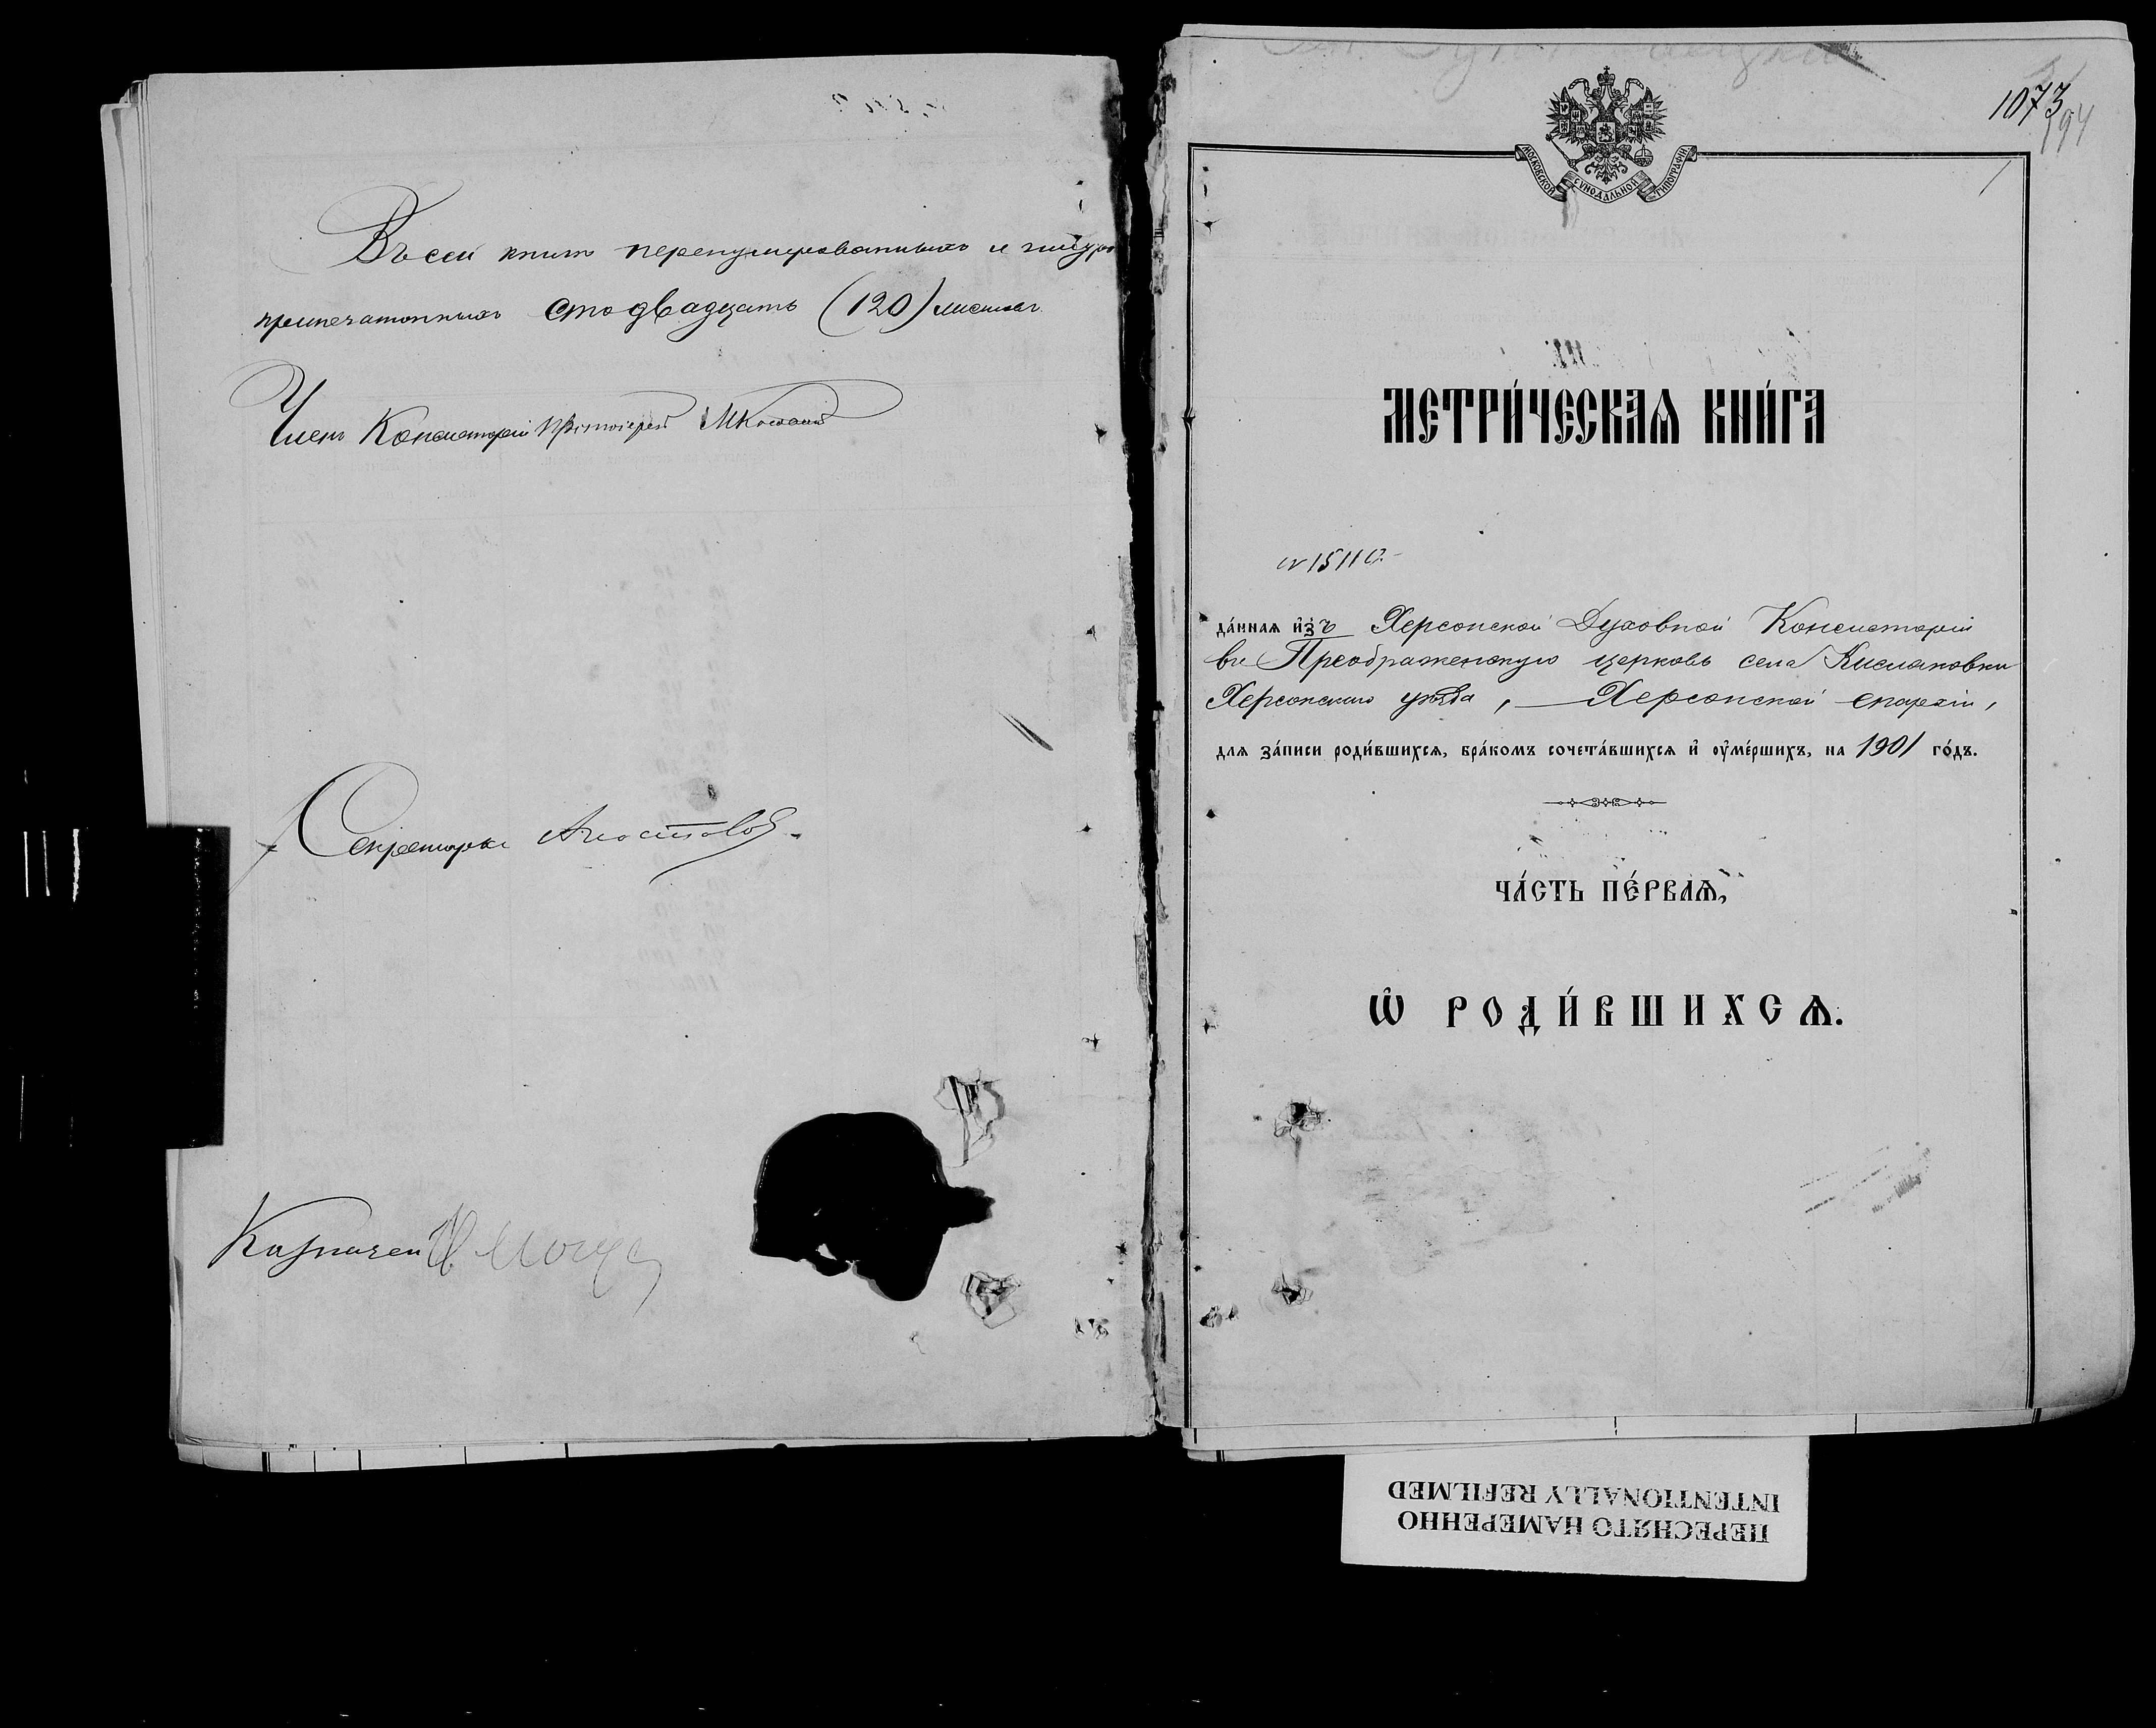 Въ сей книгѣ перенумерованныхъ и шнуро
припечатанныхъ сто двадцать (120) листовъ
Членъ Консисторіи Протоіерей
Секретарь
Казначей
1073
194
МОСКОВСКОЙ СѴНОДАЛЬНОЙ ТИПОГРАФІИ
МЕТРИ́ЧЕСКАѦ КНИ́ГА
№ 15110.
да́ннаѧ и҆зъ Херсонской Духовной Консисторіи
въ Преображенскую церковь села Кислаковки
Херсонскаго уѣзда, Херсонской епархіи,
для за́писи роди́вшихсѧ, бра́комъ сочета́вшихсѧ и҆ ᲂу҆ме́ршихъ, на 1901 го́дъ.
ЧА́СТЬ ПЕ́РВАѦ,
Ѡ҆ РОДИ́ВШИХСѦ.
ПЕРЕСНЯТО НАМЕРЕННО
INTENTIONALLY REFILMED